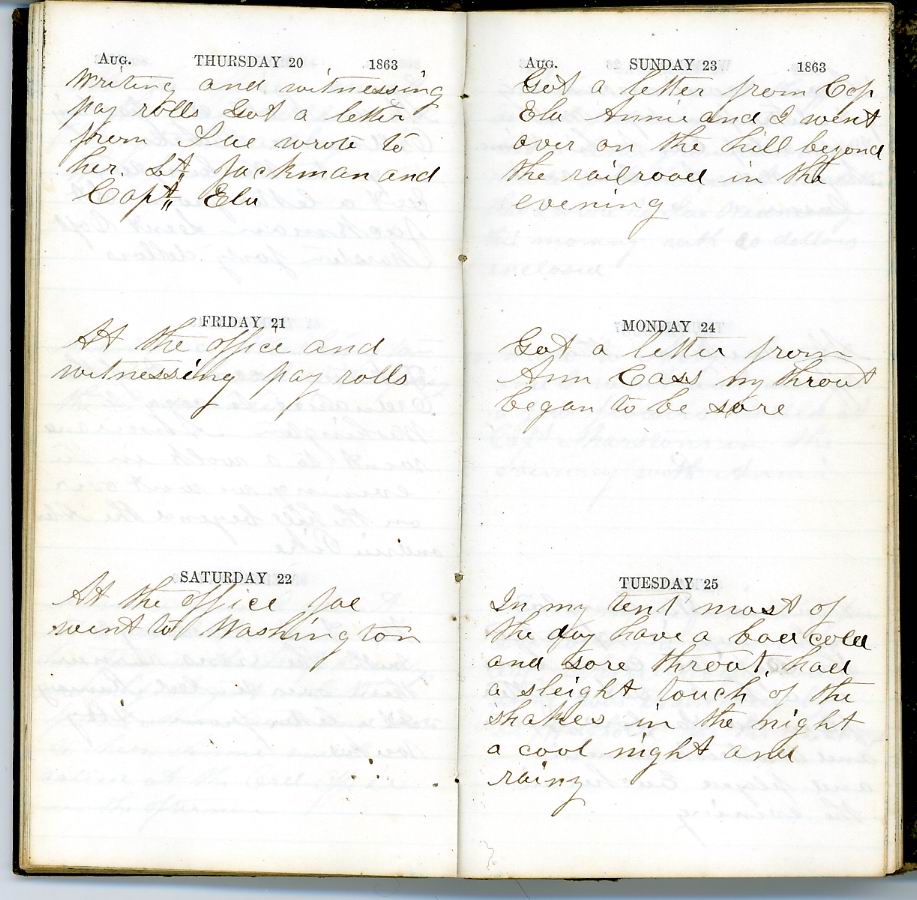 Aug. THURSDAY 20 1863
Writing and witnessing
pay rolls Got a letter
from Sue wrote to
her. Lt. Jackman and
Capt. Ela
FRIDAY 21
At the office and
witnessing pay rolls
SATURDAY 22
At the office Joe
went to Washington
Aug. SUNDAY 23 1863
Got a letter from Cap
Ela Annie and I went
over on the hill beyond
the railroad in the
evening
MONDAY 24
Got a letter from
Ann Cass my throut
began to be sore
TUESDAY 25
In my tent most of
the day have a bad cold
and sore throut, had
a sleight touch of the
shakes in the night
a cool night and
rainy